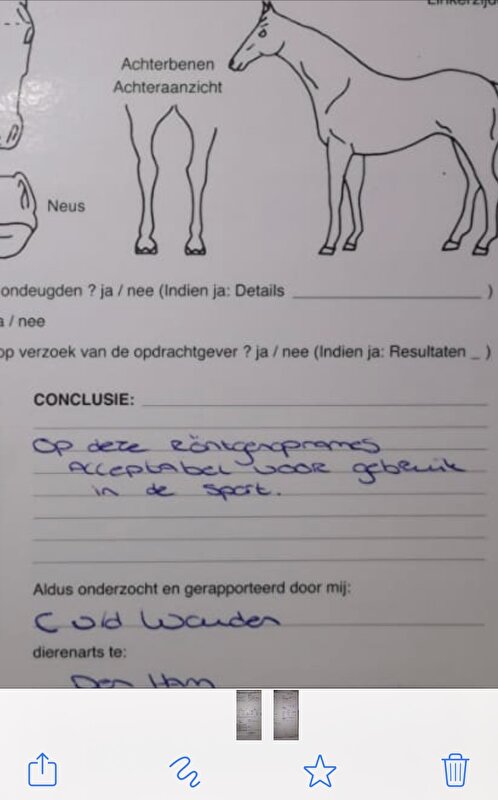 Achterbenen
Achteraanzicht
Neus
ondeugden ? ja / nee (Indien ja: Details )
/ nee
op verzoek van de opdrachtgever ? ja / nee (Indien ja: Resultaten _ )
CONCLUSIE:
Op deze Röntgenopnames
Acceptabel voor gebruik
in de sport.
Aldus onderzocht en gerapporteerd door mij:
C
dierenarts te:
Den Ham